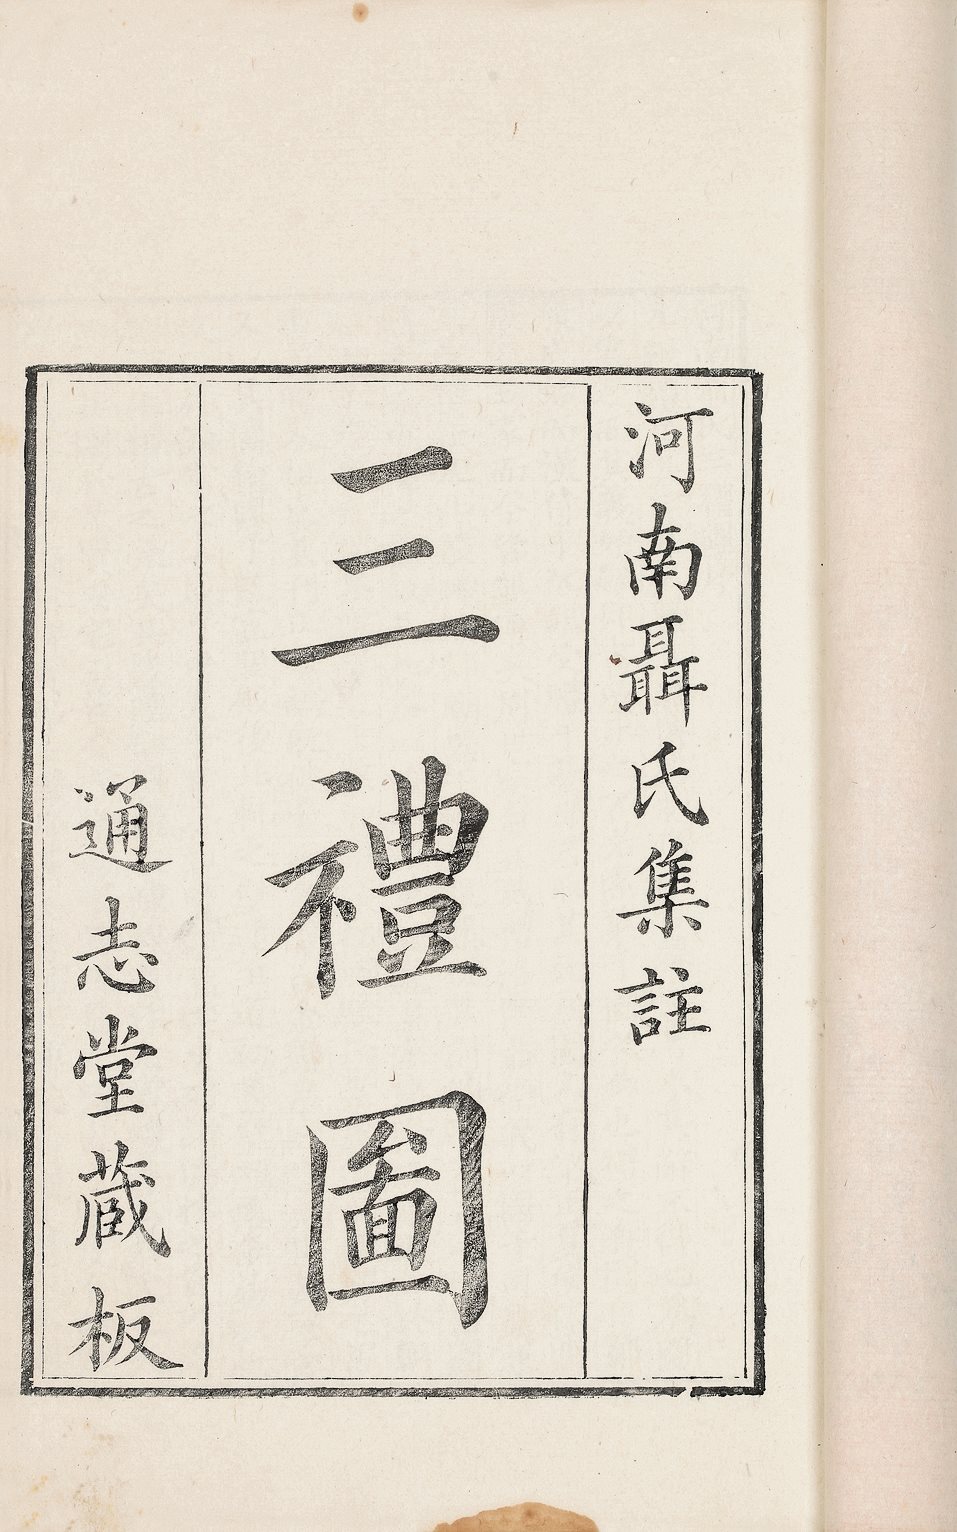 河南聶氏集註
三禮圖
通志堂蔵板